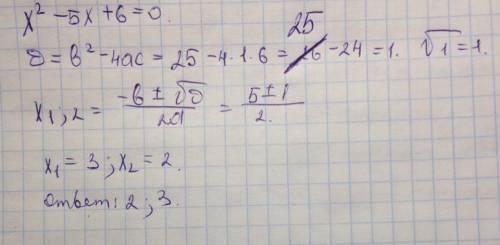 x² - 5x + 6 = 0.
D = b² - 4ac = 25 - 4·1·6 = 25 - 24 = 1. √1 = 1.
x₁;₂ = (-b ± √D)/2a = (5 ± 1)/2.
x₁ = 3; x₂ = 2.
ответ: 2; 3.